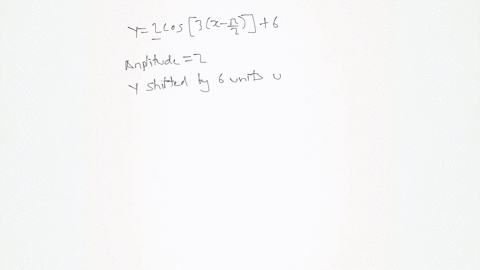 Y=2cos[3(x-π/2)]+6
Amplitude=2
Y shifted by 6 units u